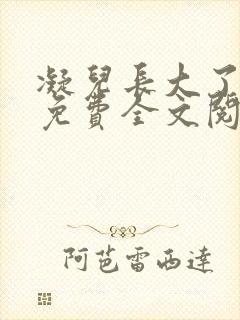 凝兒長大了
免費全文閱
阿芭雷西達